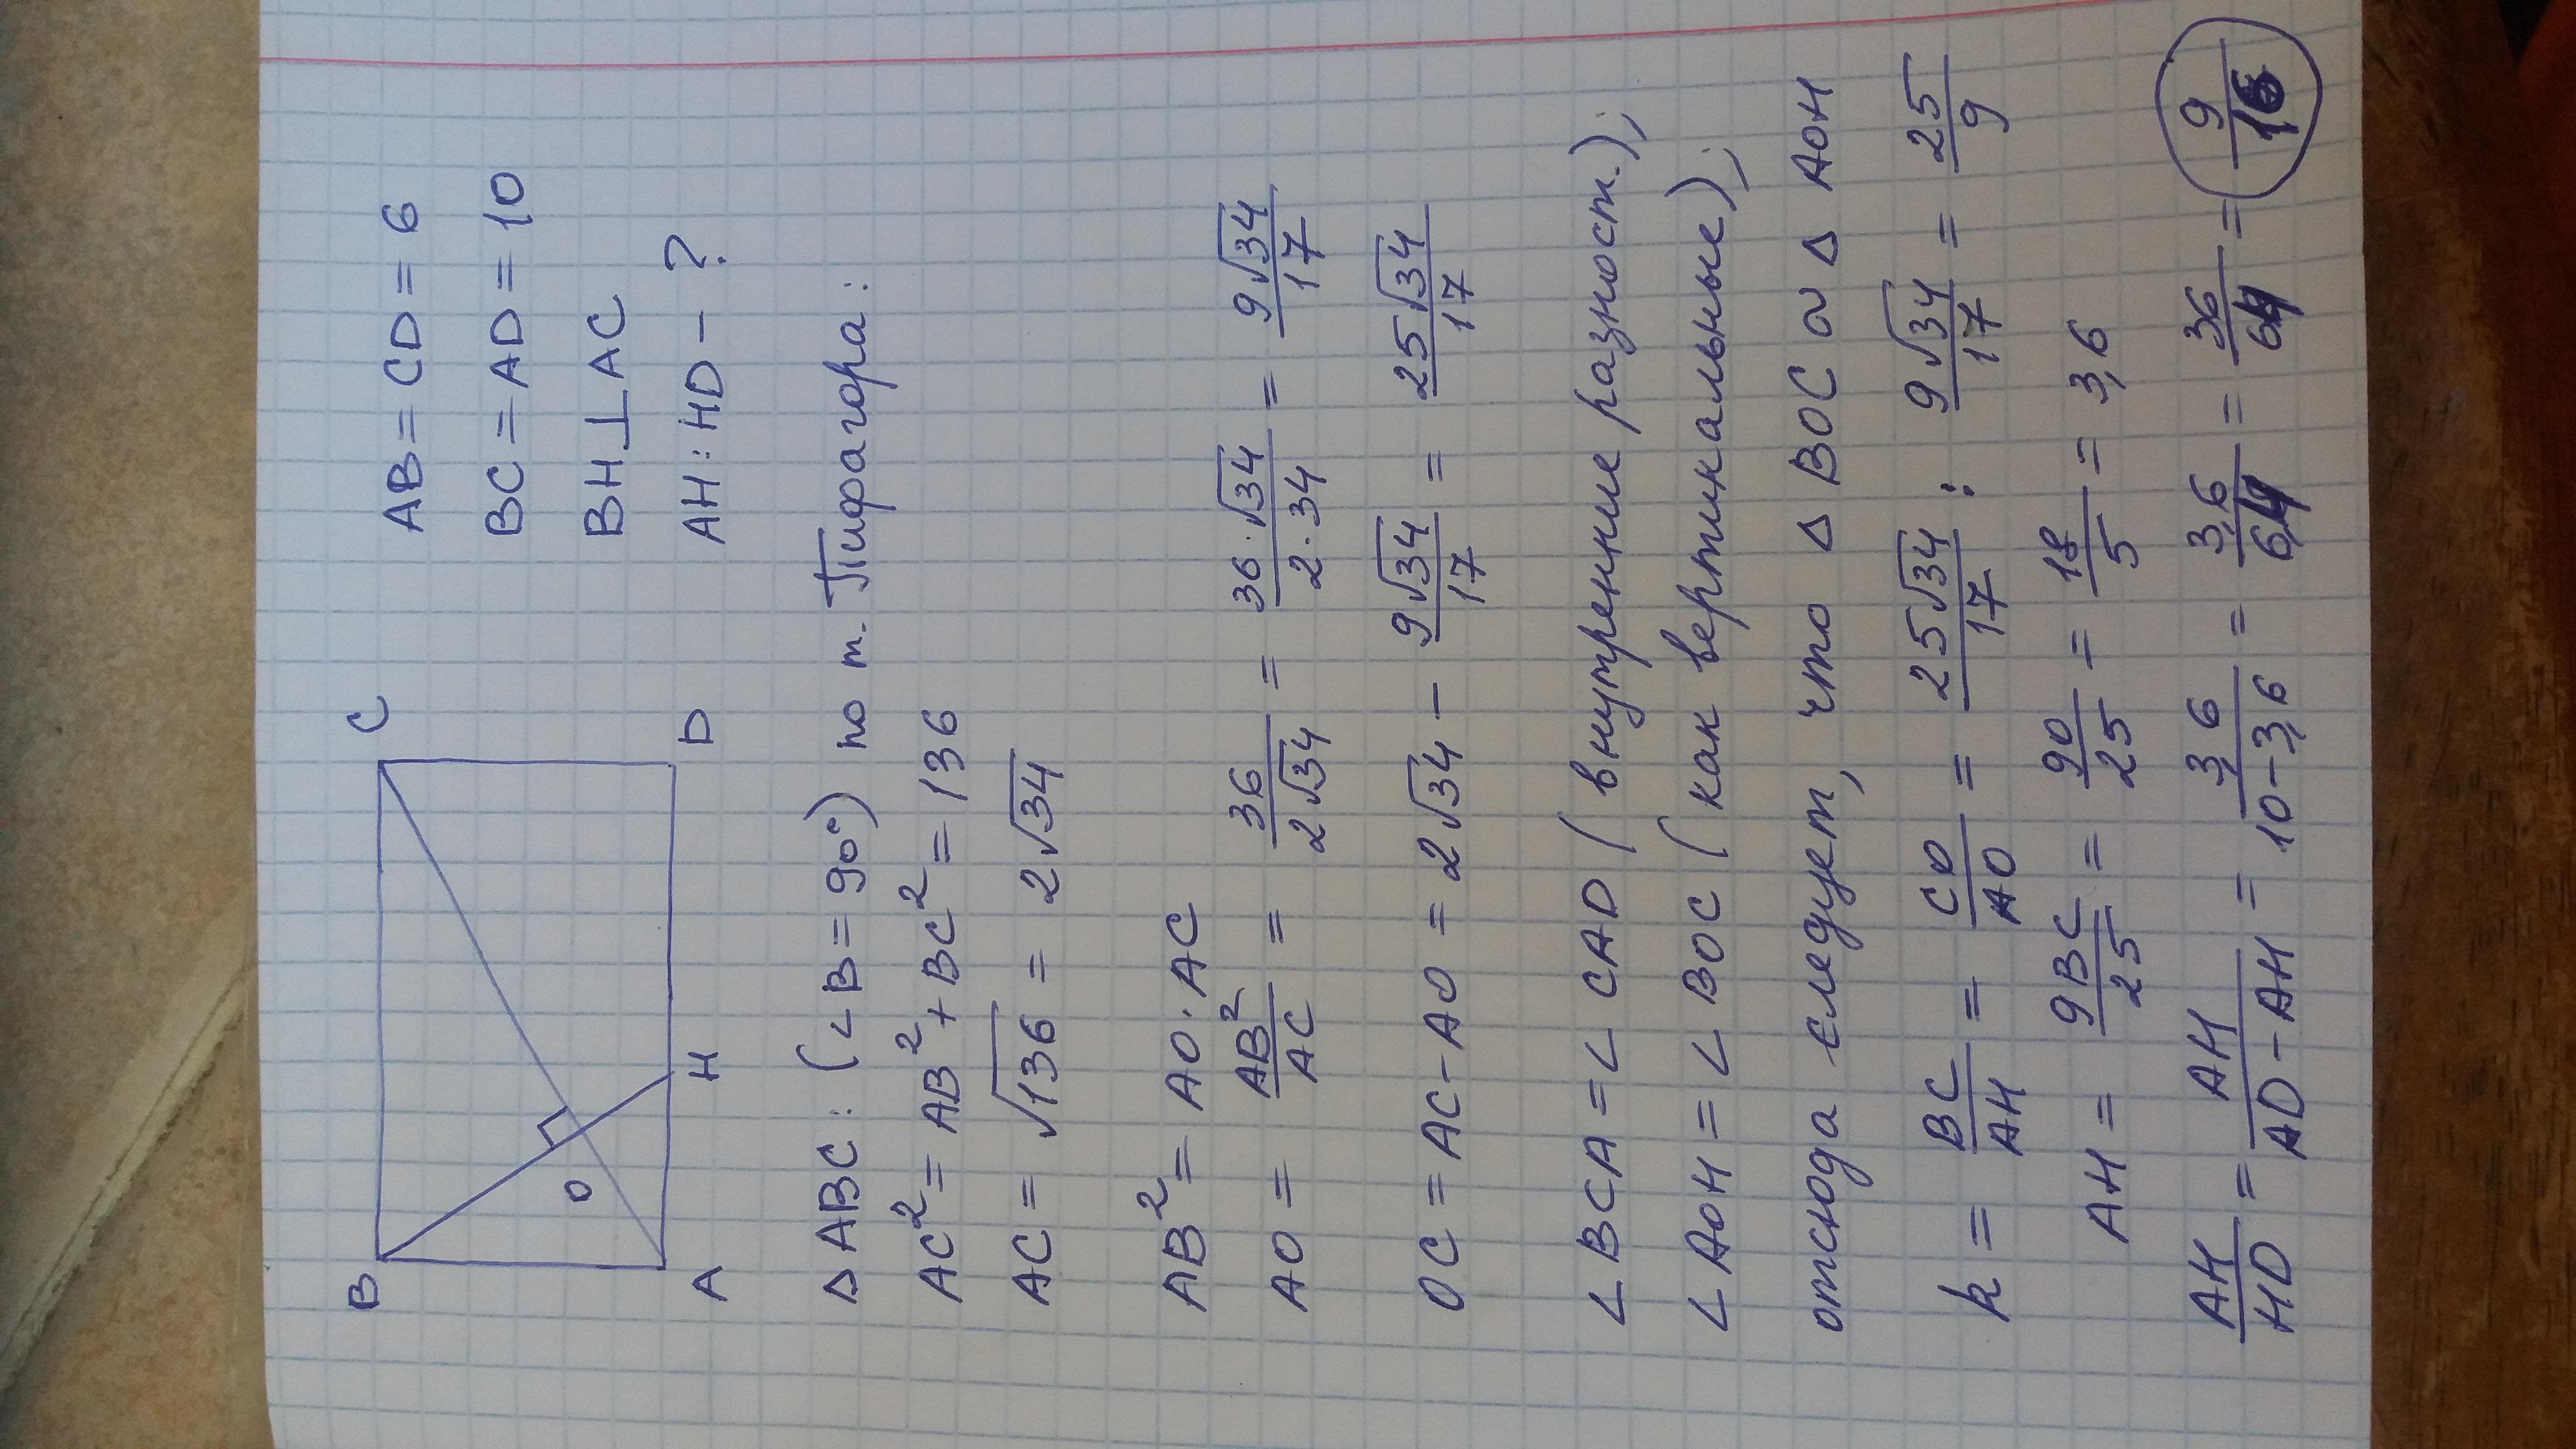 B
C
O
A
H
D
AB = CD = 6
BC = AD = 10
BH ⊥ AC
AH : HD – ?
Δ ABC : (∠B = 90°) по т. Пифагора :
AC² = AB² + BC² = 136
AC = √136 = 2√34
AB² = AO · AC
AO = AB²/AC = 36/2√34 = 36·√34/2·34 = 9√34/17
OC = AC – AO = 2√34 – 9√34/17 = 25√34/17
∠ BCA = ∠ CAD ( внутренние разност. ) ;
∠ AOH = ∠ BOC ( как вертикальные ) ;
отсюда следует, что Δ BOC ∾ Δ AOH
k = BC/AH = CO/AO = 25√34/17 : 9√34/17 = 25/9
AH = 9BC/25 = 90/25 = 18/5 = 3,6
AH/HD = AH/AD – AH = 3,6/10–3,6 = 3,6/6,4 = 36/64 = 9/16